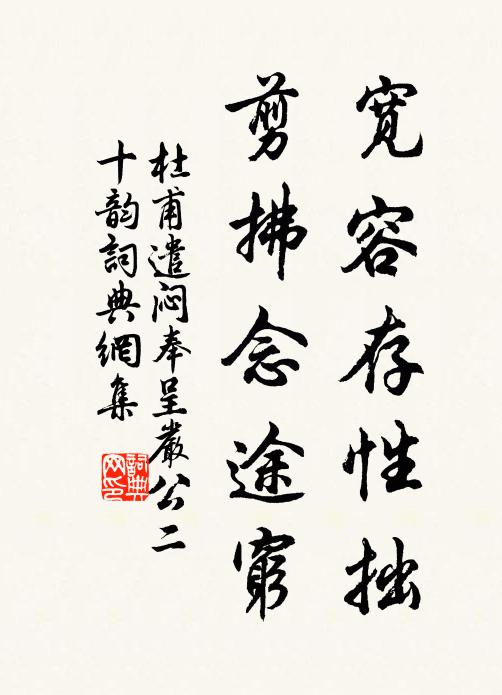 宽容存性拙
剪拂念途穷
杜甫遣闷奉呈嚴公二
十韵詞典網集
詞典网印